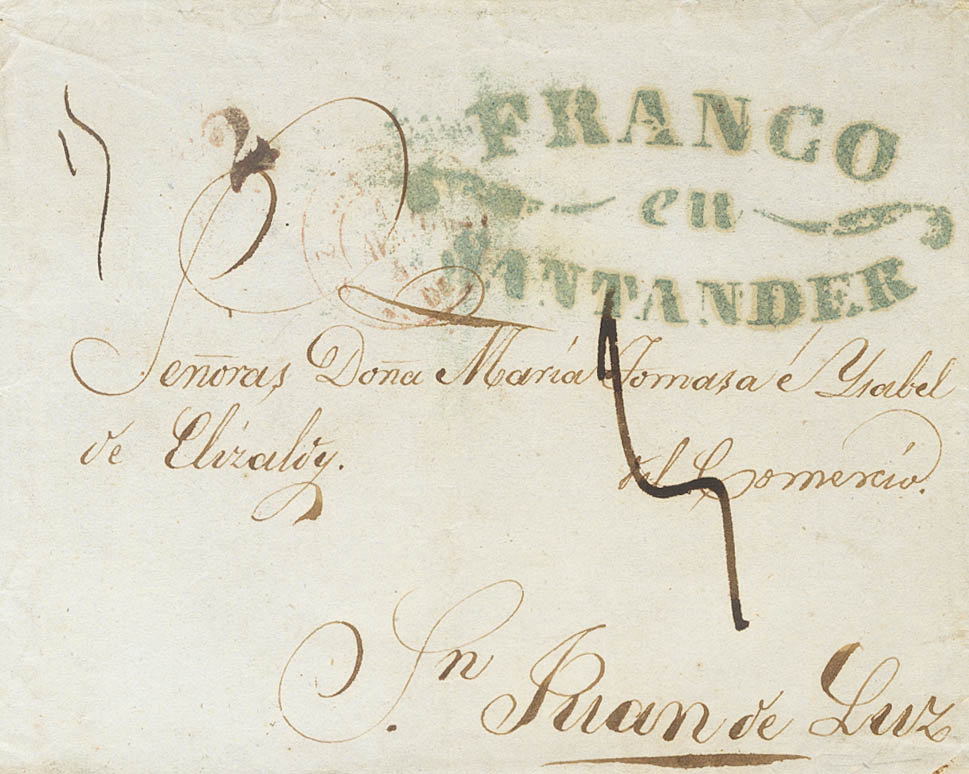 FRANCO
en
SANTANDER
Señoras Doña María Tomasa é Ysabel
de Elizaldy. del Comercio.
Sn Juan de Luz